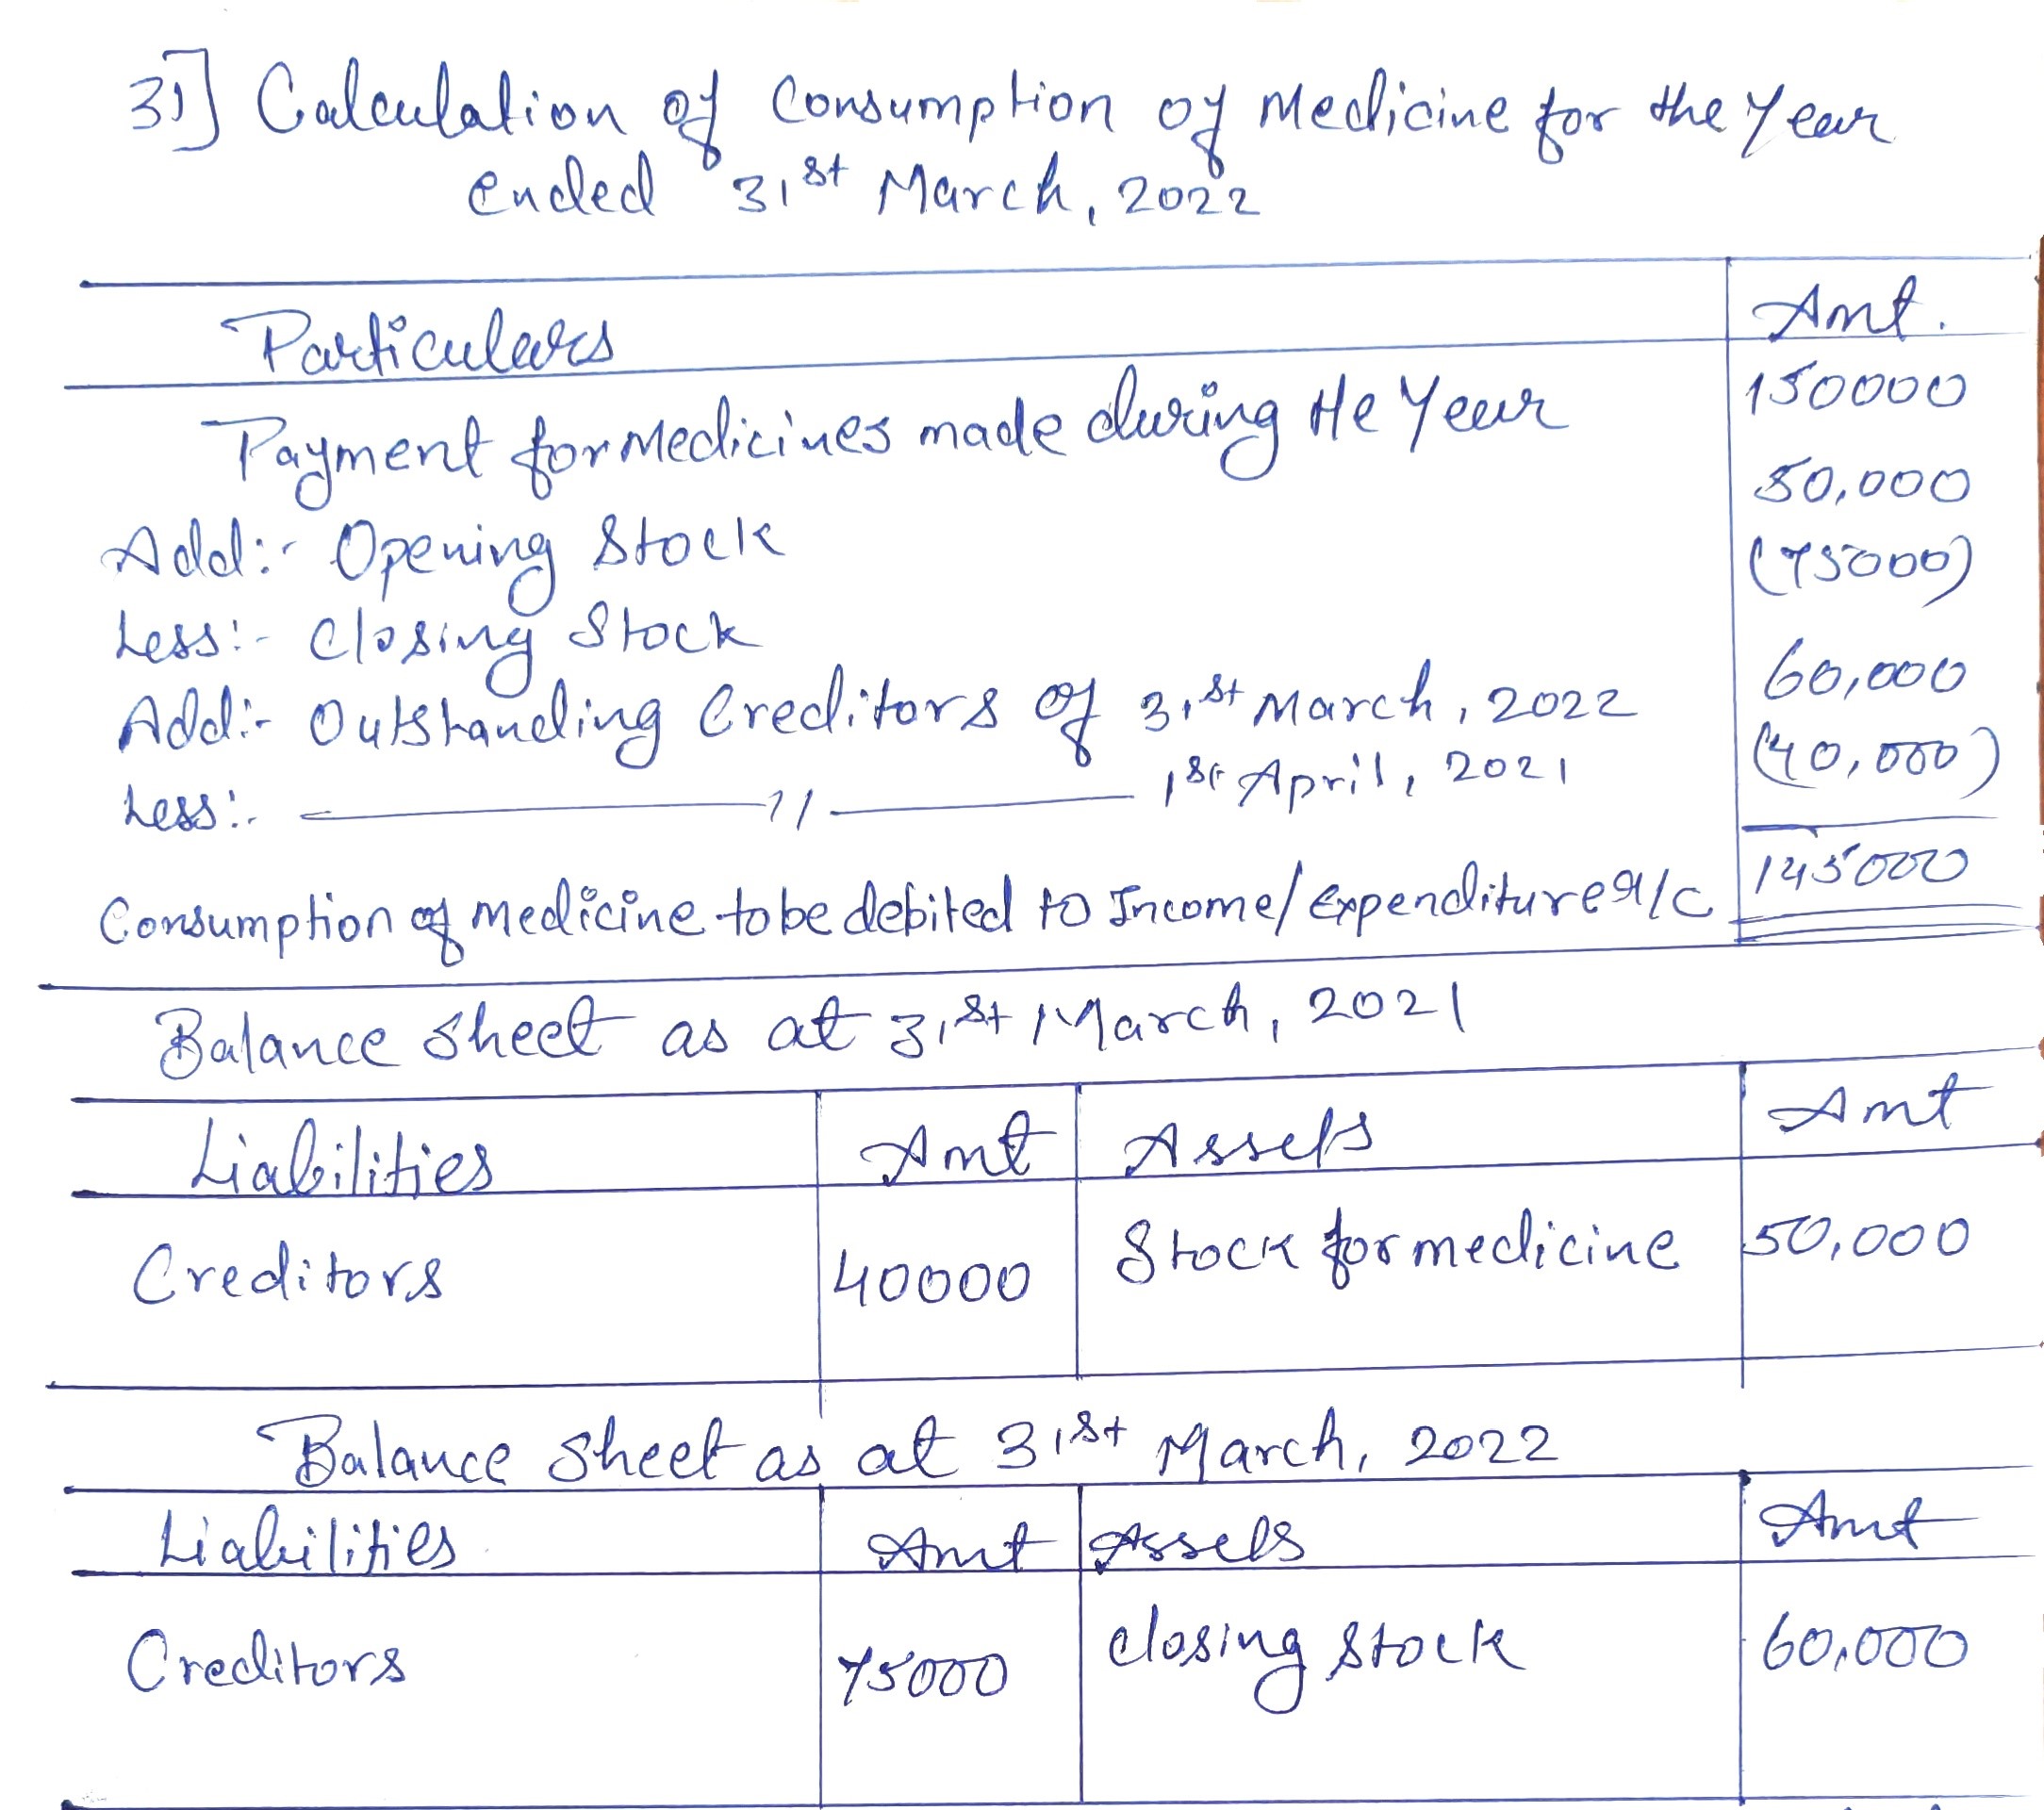 3] Calculation of Consumption of Medicine for the Year
ended 31st March, 2022
Particulars Amt.
Payment for Medicines made during the Year 150000
Add:- Opening Stock 50,000
Less:- Closing Stock (75000)
Add:- Outstanding Creditors of 31st March, 2022 60,000
Less:- —— 11 —— 1st April, 2021 (40,000)
Consumption of medicine to be debited to Income/Expenditure a/c 145000
Balance Sheet as at 31st March, 2021
Liabilities Amt Assets Amt
Creditors 40000 Stock for medicine 50,000
Balance Sheet as at 31st March, 2022
Liabilities Amt Assets Amt
Creditors 75000 Closing Stock 60,000